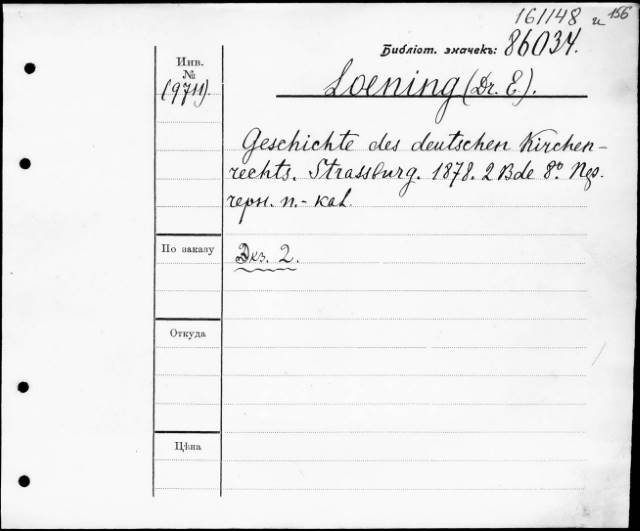 161148 и 156
Библіот. значекъ: 86034.
Инв.
№
(9711).
Loening (Dr. E.).
Geschichte des deutschen Kirchen-
rechts. Strassburg. 1878. 2 Bde 8º.
черн. п.-кал.
По заказу
Экз. 2.
Откуда
Цѣна